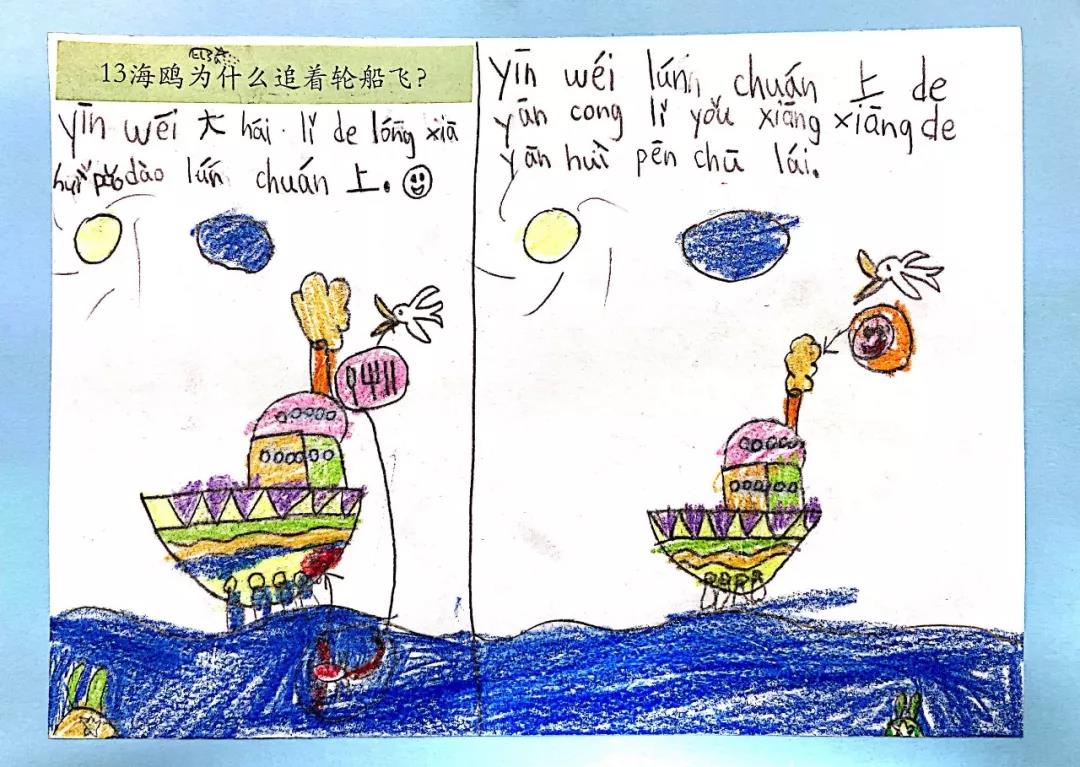 13海鸥为什么追着轮船飞?
yīn wéi 大 hái lǐ de lóng xiā
dào lún chuán 上。
yīn wéi lún chuán 上 de
yān cong lǐ yǒu xiāng xiāng de
yān huì pēn chū lái.